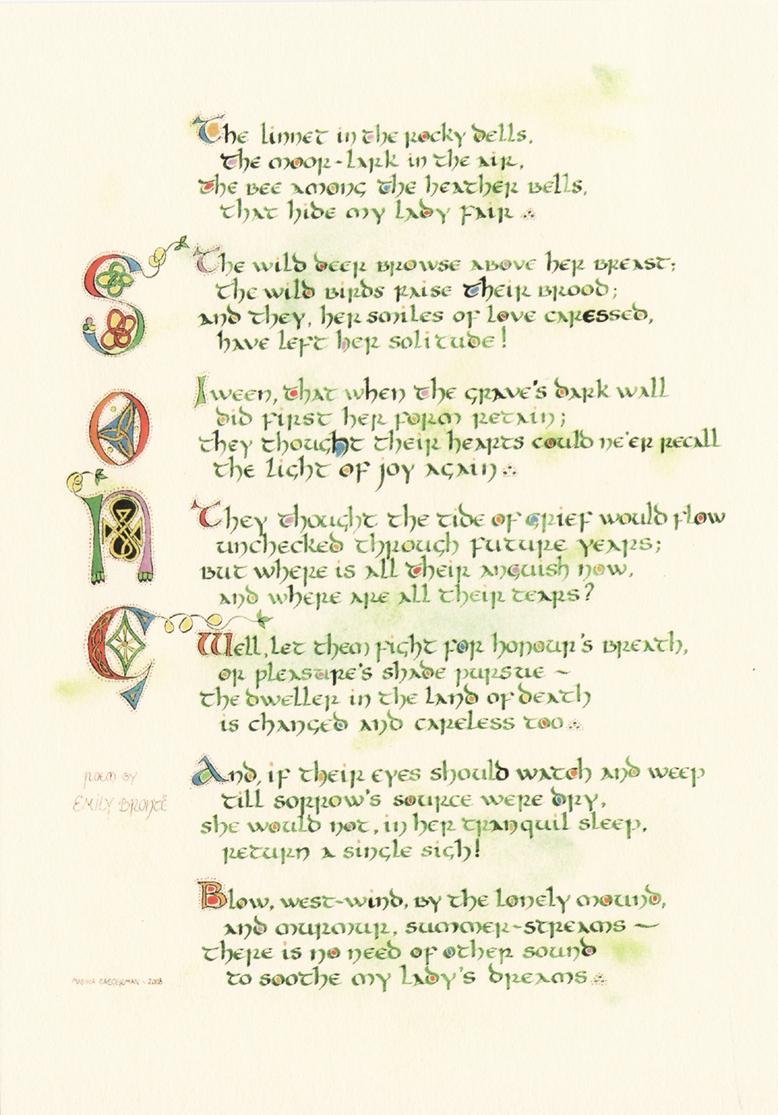 SONG
The linnet in the rocky dells,
the moor-lark in the air,
the bee among the heather bells,
that hide my lady fair ∴
The wild deer browse above her breast;
the wild birds raise their brood;
and they, her smiles of love caressed,
have left her solitude!
I ween, that when the grave's dark wall
did first her form retain;
they thought their hearts could ne'er recall
the light of joy again ∴
They thought the tide of grief would flow
unchecked through future years;
But where is all their anguish now,
and where are all their tears?
Well, let them fight for honour's breath,
or pleasure's shade pursue ~
the dweller in the land of death
is changed and careless too ∴
And, if their eyes should watch and weep
till sorrow's source were dry,
she would not, in her tranquil sleep,
return a single sigh!
Blow, west-wind, by the lonely mound,
and murmur, summer-streams ~
there is no need of other sound
to soothe my lady's dreams ∴
poem by
Emily Brontë
- 2008